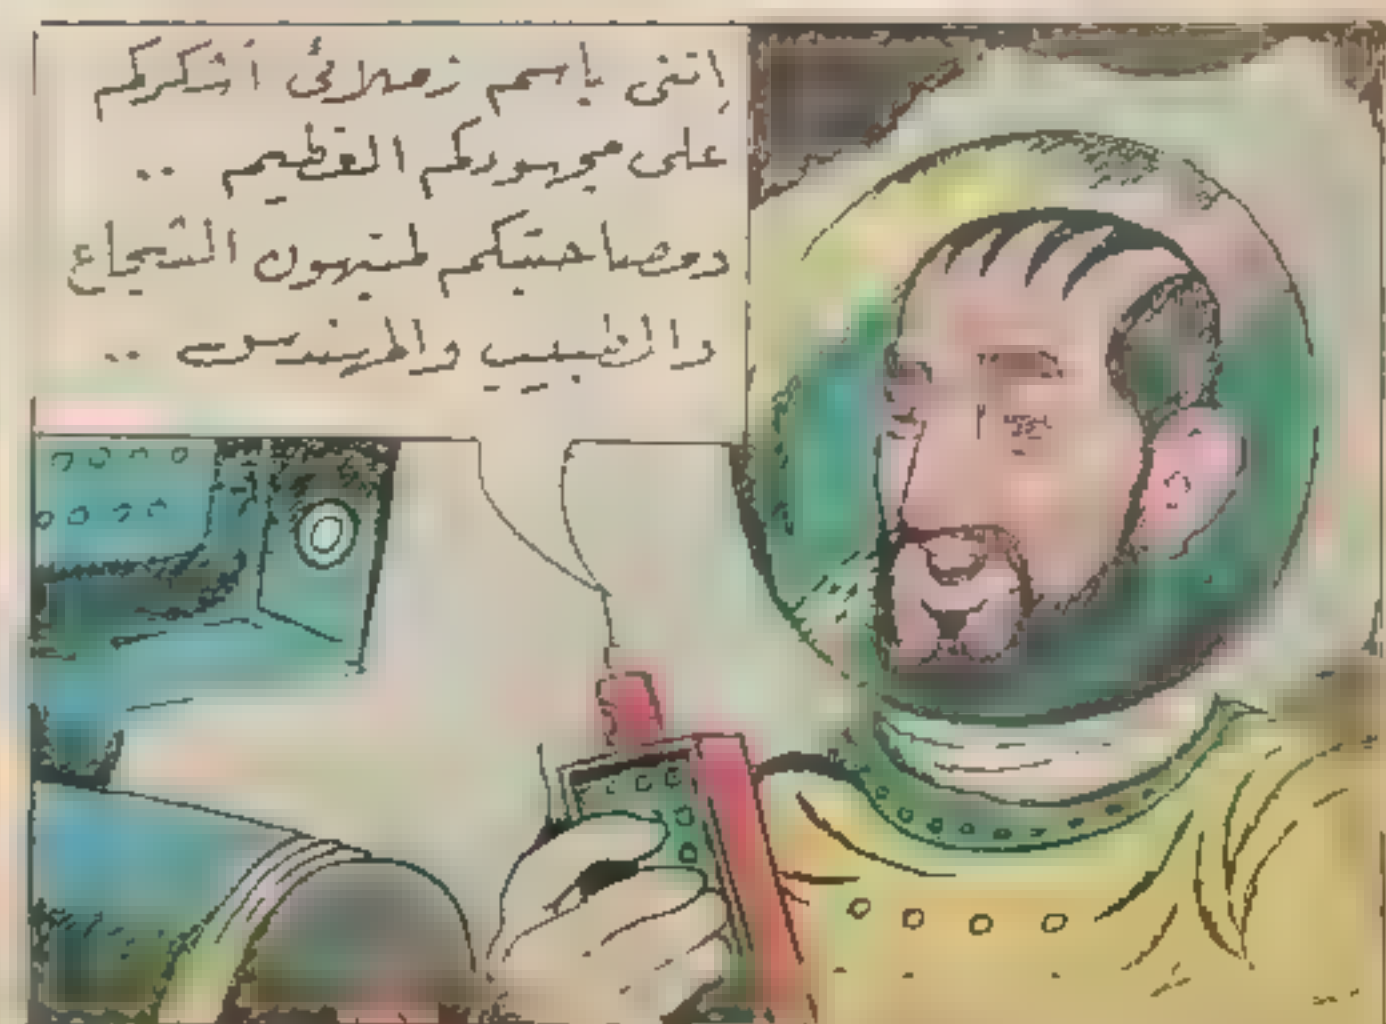 إننى بإسم زملائى أشكركم
على مجهودكم العظيم ..
ومصاحبتكم لمتهون الشجاع
والطبيب والمهندس ..